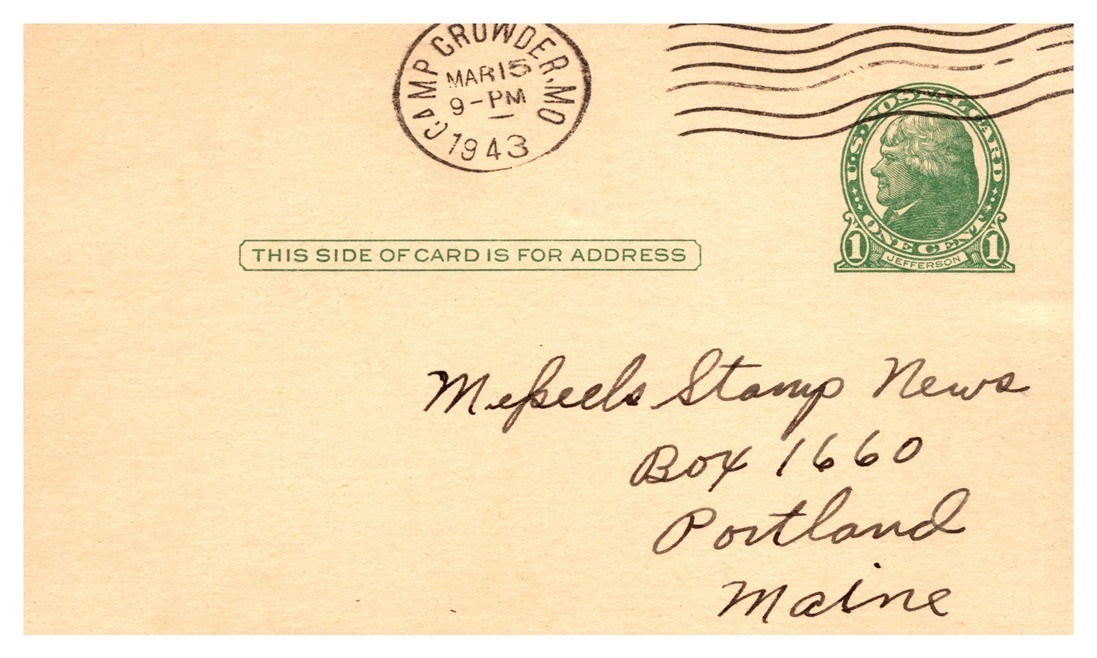 CAMP CROWDER, MO
MAR 15
9-PM
1943
U.S. POSTAL CARD
ONE CENT
1 JEFFERSON 1
THIS SIDE OF CARD IS FOR ADDRESS
Mekeels Stamp News
Box 1660
Portland
Maine